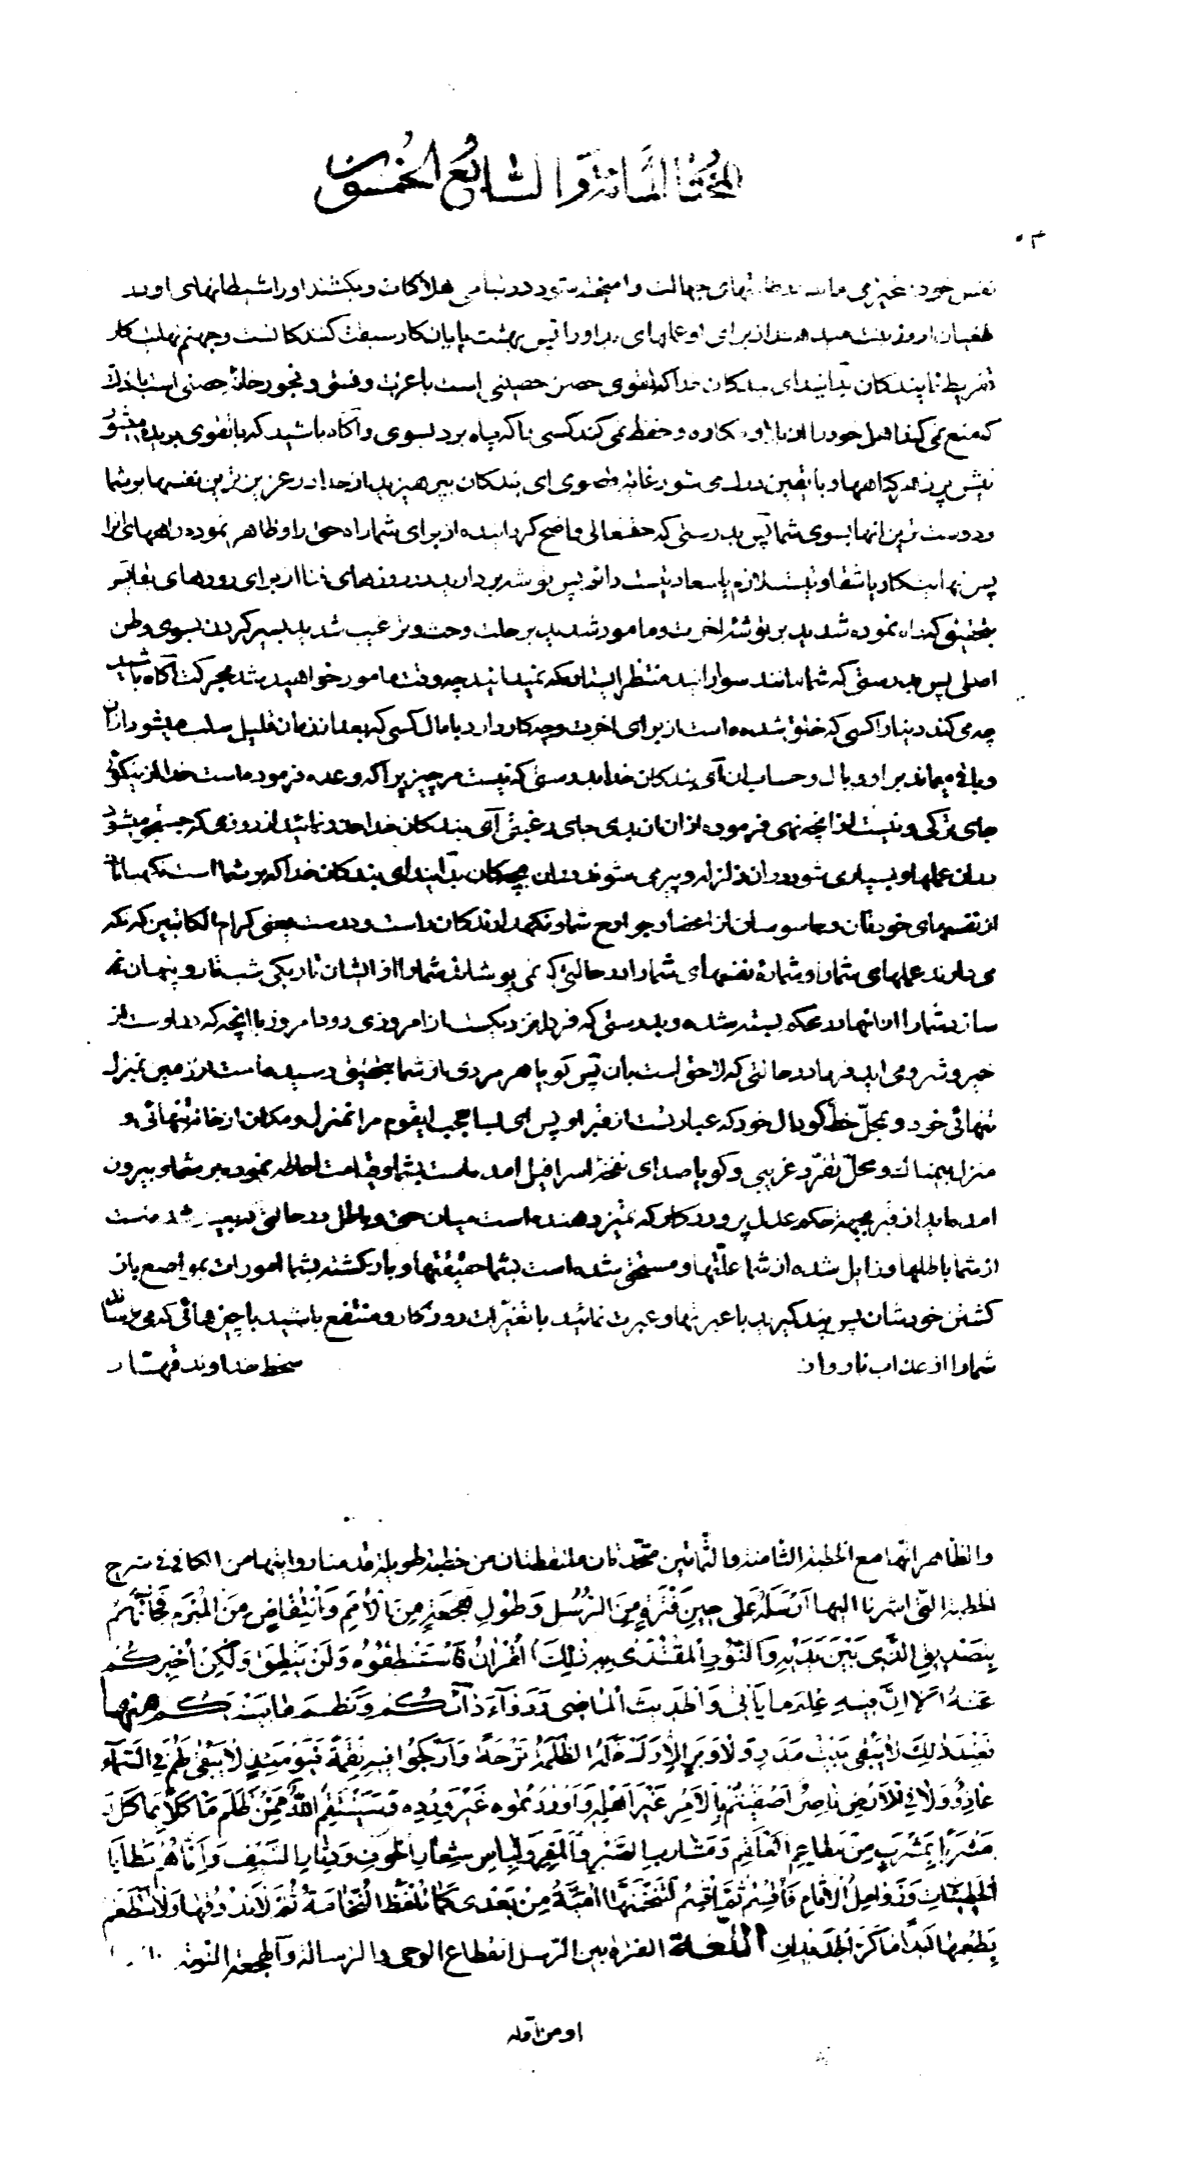 المختا المائة و السابع الخمسون
نفس خود غیر می ماند جهالت و امیخته شود در هلاکات و بکشند او را شیطانهای او در
طغیان او و زینت میدهند از برای او عملهای بد او را پس بهشت پایان کار سبقت کنندکانست و جهنم نهایت کار
تفریط نمایندکان بدانید ای بندکان خدا که تقوی حصن حصینی است با عزت و فسق و فجور خانهٔ حصنی است با ذلت
که منع نمی کند اهل خود را از بلا و مکاره و حفظ نمی کند کسی را که پناه برد بسوی او آکاه باشید که با تقوی بریده میشود
نیش پر زهر کناهها و با یقین درک می شود غایة قصوی ای بندکان بپرهیزید از خدا در عزیزترین نفسها بر شما
و دوست ترین انها بسوی شما پس بدرستی که حقتعالی واضح کردانیده از برای شما راه حق را و ظاهر نموده راههای انرا
پس نهایت کار یا شقاوتیست لازم یا سعادتیست دائم پس توشه بردارید در روزهای فنا از برای روزهای بقا پس
بتحقیق که راه نموده شدید بر توشهٔ اخرت و مامور شدید بر حلت و حث و ترغیب شدید بسیر کردن بسوی وطن
اصلی پس بدرستی که شما مانند سوارانید منتظر ایستاده که نمیدانید چه وقت مامور خواهید شد بحرکت آکاه باشید
چه می کند دنیا را کسی که خلق شده است از برای اخرت و چه کار دارد با مال کسی که بعد از زمان قلیل سلب میشود از ان
و باقی میماند بر او وبال و حساب ان ای بندکان خدا بدرستی که نیست مر چیزیرا که وعده فرموده است خدا از نیکوئی
جای ترکی و نیست از انچه نهی فرموده از ان از بدی جای رغبتی ای بندکان خدا حذر نمائید از روزی که جستجو میشود
در ان عملها و بسیار می شود در ان زلزله و پیر می شوند در ان بچکان بدانید ای بندکان خدا که بر شما است نکهبانان
از نفسهای خودتان و جاسوسان از اعضا و جوارح شما و نکهدارندکان راست و درست یعنی کرام الکاتبین که نکه
می دارند عملهای شما را و شمارهٔ نفسهای شما را در حالتی که نمی پوشاند شما را از ایشان تاریکی شب تار و پنهان نمی
سازد شما را از انها در محکم بسته شده و بدرستی که فردا نزدیکست از امروز می رود امروز با انچه که در اوست از
خیر و شر و می اید فردا در حالتی که لاحق است بان پس کویا هر مردی از شما بتحقیق رسیده است از زمین بمنزل
تنهائی خود و بمحل خط کودال خود که عبارتست از قبر او پس ای بسا عجب ایقوم مر انمنزل و مکان از خانهٔ تنهائی و
منزل بیمناک و محل تفرّد و غریبی و کویا صدای نفخهٔ اسرافیل امده است بشما و قیامت احاطه نموده بر شما و بیرون
امده اید از قبر بجهة حکم عدل پروردکار که تمیز دهنده است میان حق و باطل در حالتی که بعید شده است
از شما باطلها و زایل شده از شما علّتها و مستحق شده است بشما حقیقتها و بازکشته بشما امورات بمواضع باز
کشتن خودشان پس پند کیرید با عبرتها و عبرت نمائید با تغیّرات روزکار و منتفع باشید با چیزهائی که می ترساند
شما را از عذاب نار و از سخط خداوند قهّار
و الظاهر انّها مع الخطبة الثامنة و الثّمانین متّحدتان ملتقطتان من خطبة طویلة قدمنا روایتها من الکافی فی شرح
الخطبة الّتی اشرنا الیها أَرْسَلَهُ عَلَی حِینِ فَتْرَةٍ مِنَ الرُّسُلِ وَ طُولِ هَجْعَةٍ مِنَ الْأُمَمِ وَ انْتِقَاضٍ مِنَ الْمُبْرَمِ فَجَائَهُمْ
بِتَصْدِیقِ الَّذی بَیْنَ یَدَیْهِ وَ النُّورِ الْمُقْتَدَی بِهِ ذلِکَ الْقُرْانُ فَاسْتَنْطِقُوهُ وَ لَنْ یَنْطِقَ وَ لکِنْ أُخْبِرُکُمْ
عَنْهُ أَلا إِنَّ فِیهِ عِلْمَ ما یَأْتِی وَ الْحَدِیثَ عَنِ الْماضِی وَ دَوآءَ دآئِکُمْ وَ نَظْمَ ما بَیْنَکُمْ منها
فَعِنْدَ ذلِکَ لا یَبْقی بَیْتُ مَدَرٍ وَ لا وَبَرٍ إِلّا وَ أَدْخَلَهُ الظَّلَمَةُ تَرْحَةً وَ أَوْلَجُوا فِیهِ نِقْمَةً فَیَوْمَئِذٍ لا یَبْقی لَهُمْ فِی السَّمآءِ
عاذِرٌ وَ لا فِی الْأَرْضِ ناصِرٌ أَصْفَیْتُمْ بِالْأَمْرِ غَیْرَ أَهْلِهِ وَ أَوْرَدْتُمُوهُ غَیْرَ وِرْدِهِ وَ سَیَنْتَقِمُ اللّهُ مِمَّنْ ظَلَمَ مَأْکَلًا بِمَأْکَلٍ وَ
مَشْرَبًا بِمَشْرَبٍ مِنْ مَطاعِمِ الْعَلْقَمِ وَ مَشارِبِ الصَّبِرِ وَ الْمَقِرِ وَ لِباسِ شِعارِ الْخَوْفِ وَ دِثارِ السَّیْفِ وَ إِنَّما هُمْ مَطایا
الْخَطِیئاتِ وَ زَوامِلُ الْاثامِ فَأُقْسِمُ ثُمَّ أُقْسِمُ لَتَنْخَمَنَّها أُمَیَّةُ مِنْ بَعْدِی کَما تُلْفَظُ النُّخامَةُ ثُمَّ لا تَذُوقُها وَ لا تَطْعَمُ
بِطَعْمِها أَبَدًا ما کَرَّ الْجَدِیدانِ اللّغة الفترة بین الرّسل انقطاع الوحی و الرّسالة و الهجعة النّومة
او من اوّله